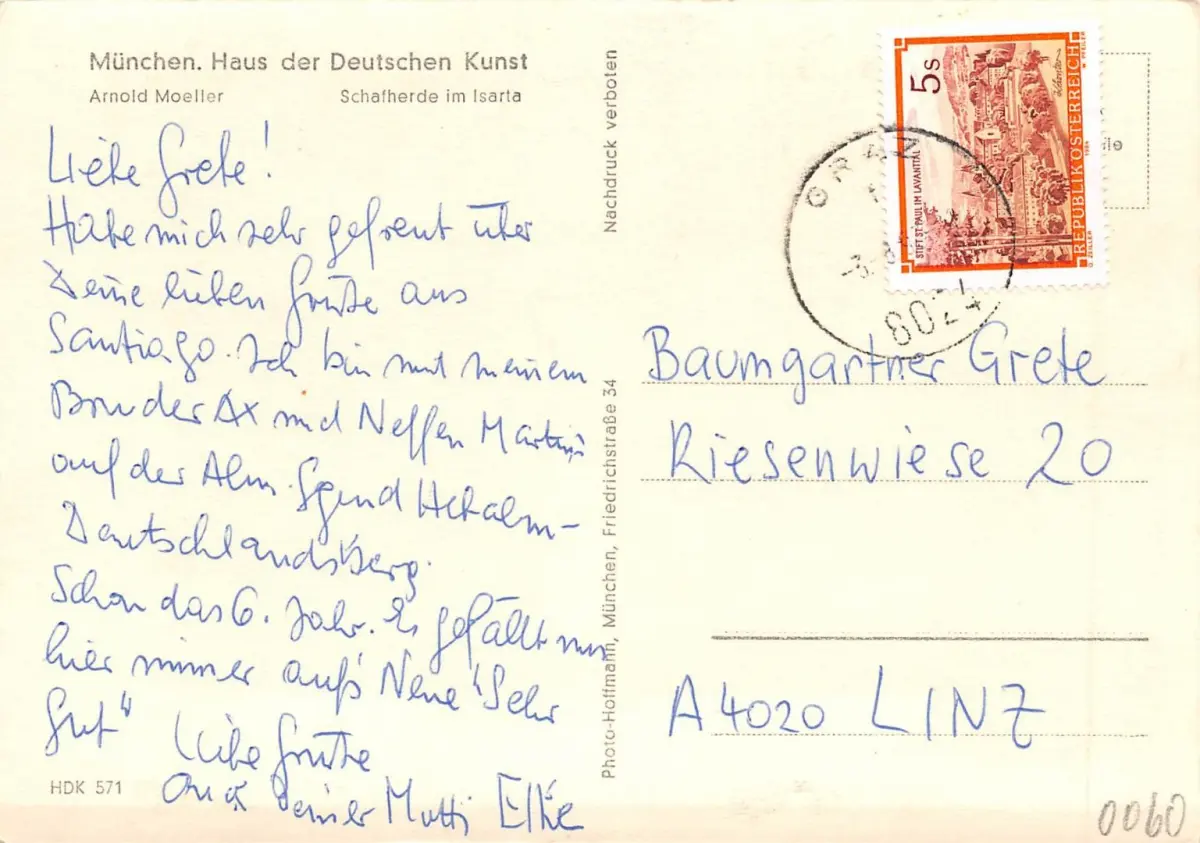 München. Haus der Deutschen Kunst
Arnold Moeller Schafherde im Isarta
Liebe Grete!
Habe mich sehr gefreut über
Deine lieben Grüße aus
Santiago. Ich bin mit meinem
Bruder Ax und Neffen Martin
auf der Alm. Hebalm-
Deutschlandsberg.
Schon das 6. Jahr. Es gefällt mir
hier immer auf's Neue "Sehr
gut" Liebe Grüße
deiner Mutti Elke
HDK 571
Nachdruck verboten
Photo-Hoffmann, München, Friedrichstraße 34
5s
STIFT ST. PAUL IM LAVANTTAL
REPUBLIK ÖSTERREICH
GRAZ
8024
Baumgartner Grete
Riesenwiese 20
A 4020 LINZ
0060